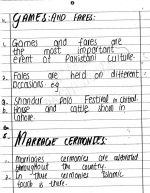 GAMES AND FARES:
1. Games and fares are
the most important
event of Pakistani Culture.
2. Fales are held on different
Occasions eg
a. Shandur Polo Festival in Chitral
b. House and Cattle Show in
Lahore.
MARRIAGE CERMONIES:
1. Marriages cermonies are celebrated
throughout the country.
2. In these cermonies Islamic
touch is there.